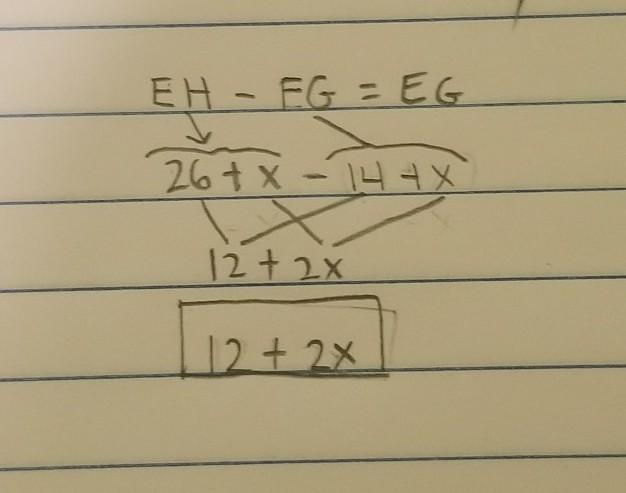 EH - EG = EG
26 + x - 14 + x
12 + 2x
12 + 2x